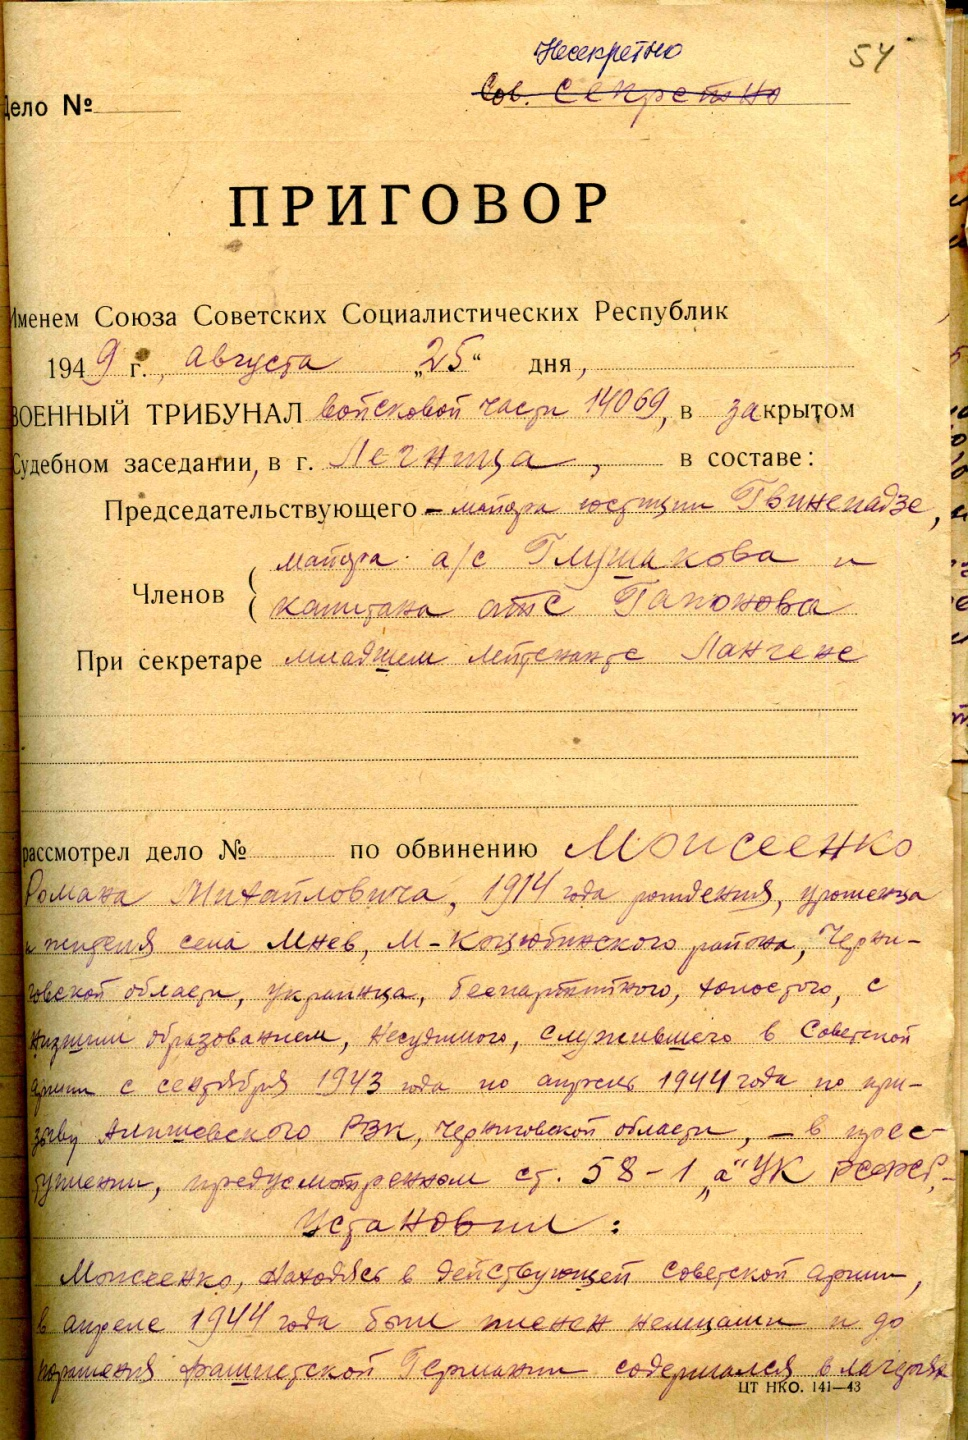 Несекретно
54
Сов. Секретно
Дело №
ПРИГОВОР
Именем Союза Советских Социалистических Республик
1949 г., августа „25“ дня,
ВОЕННЫЙ ТРИБУНАЛ войсковой части 14069, в закрытом
Судебном заседании, в г. Легница, в составе:
Председательствующего – майора юстиции Гвинепадзе,
майора а/с Глушакова и
Членов
капитана Гапонова
При секретаре младшем лейтенанте Лангене
рассмотрел дело № по обвинению Моисеенко
Романа Михайловича, 1914 года рождения, уроженца
и жителя села Мнев, М-Коцюбинского района, Черни-
говской области, украинца, беспартийного, холостого, с
низшим образованием, несудимого, служившего в Советской
армии с сентября 1943 года по апрель 1944 года по при-
зыву РВК, Черниговской области, – в прес-
туплении, предусмотренном ст. 58-1 „а“ УК РСФСР, –
Установил:
Моисеенко, находясь в действующей Советской армии,
в апреле 1944 года был пленен немцами и до
поражения фашистской Германии содержался в лагерях
ЦТ НКО. 141—43